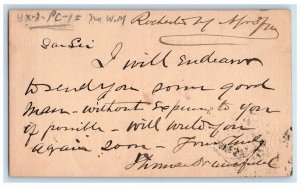 UX-3-PC-1= no W.M
Rochester NY Apr 8/72
Dear Sir
I will Endeavor
to send you some good
man - without expense to you
if possible - will write you
again soon - Yours truly
Thomas